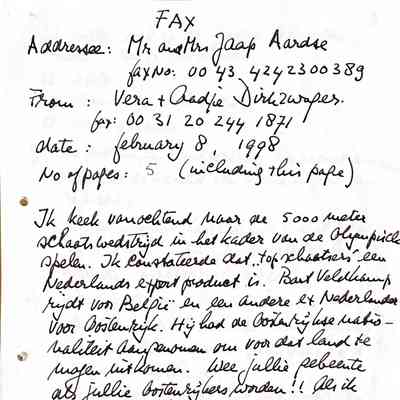 FAX
Addressee: Mr and Mrs Jaap Aardse
fax No: 00 43 4242300389
From : Vera + Aadje Dirkzwager.
fax: 00 31 20 244 1871
date : february 8, 1998
No of pages: 5 (including this page)
Ik keek vanochtend naar de 5000 meter
schaatswedstrijd in het kader van de Olympische
spelen. Ik constateerde dat "topschaatsers" een
Nederlands export product is. Bart Veldkamp
rijdt voor België en een andere ex Nederlander
voor Oostenrijk. Hij had de Oostenrijkse natio-
naliteit aangenomen om voor dat land te
mogen uitkomen. Wee jullie gebeente
als jullie Oostenrijkers worden!! Als ik